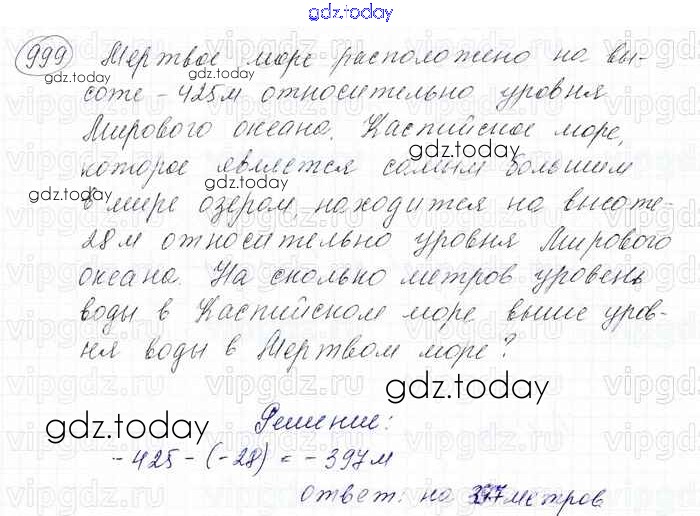 gdz.today
999 Мертвое море расположено на вы-
gdz.today
соте -425м относительно уровня
Мирового океана. Каспийское море,
gdz.today
которое является самым большим
gdz.today
gdz.today
в мире озером, находится на высоте-
28м относительно уровня Мирового
океана. На сколько метров уровень
воды в Каспийском море выше уров-
ня воды в Мертвом море?
gdz.today
gdz.today
Решение:
-425-(-28)=-397м
ответ: на 397метров